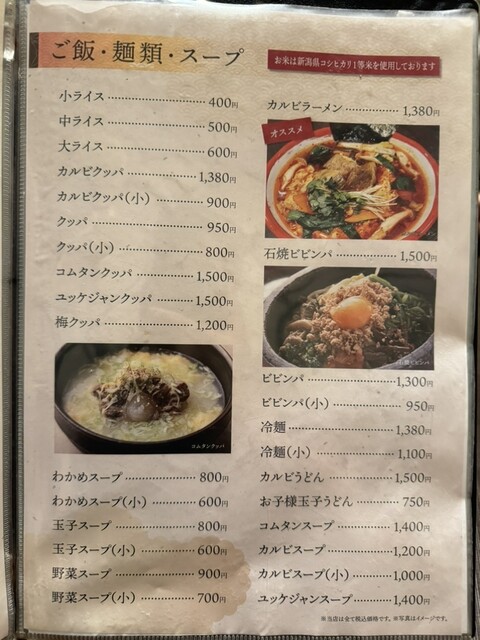 ご飯・麺類・スープ
お米は新潟県コシヒカリ1等米を使用しております
小ライス 400円
中ライス 500円
大ライス 600円
カルビクッパ 1,380円
カルビクッパ(小) 900円
クッパ 950円
クッパ(小) 800円
コムタンクッパ 1,500円
ユッケジャンクッパ 1,500円
梅クッパ 1,200円
コムタンクッパ
わかめスープ 800円
わかめスープ(小) 600円
玉子スープ 800円
玉子スープ(小) 600円
野菜スープ 900円
野菜スープ(小) 700円
カルビラーメン 1,380円
オススメ
石焼ビビンバ 1,500円
石焼ビビンバ
ビビンバ 1,300円
ビビンバ(小) 950円
冷麺 1,380円
冷麺(小) 1,100円
カルビうどん 1,500円
お子様玉子うどん 750円
コムタンスープ 1,400円
カルビスープ 1,200円
カルビスープ(小) 1,000円
ユッケジャンスープ 1,400円
※当店は全て税込価格です。※写真はイメージです。